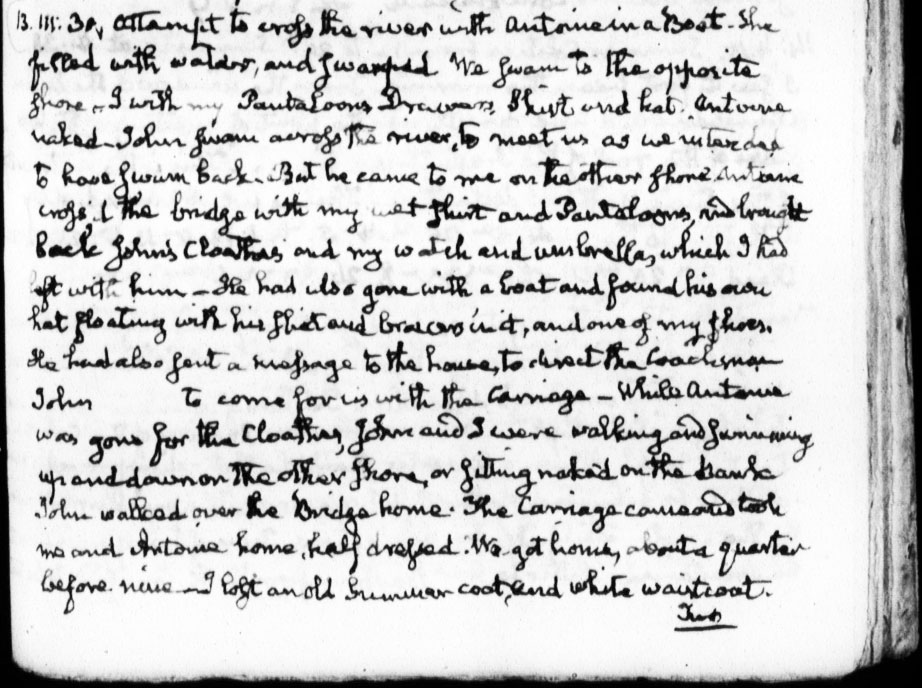 13. III. 30. Attempt to cross the river with Antoine in a Boat. She
filled with water, and swamped We swam to the opposite
shore – I with my Pantaloons Drawers Shirt and hat. Antoine
naked – John swam across the river, to meet us as we intended
to have swum back. But he came to me on the other shore. Antoine
cross'd the bridge with my wet shirt and Pantaloons, and brought
back John's Cloathes and my watch and umbrella, which I had
left with him – He had also gone with a boat and found his own
hat floating with his shirt and braces in it, and one of my shoes.
He had also sent a message to the house, to direct the Coachman
John to come for us with the Carriage – While Antoine
was gone for the Cloathes, John and I were walking and swimming
up and down on the other shore, or sitting naked on the bank
John walked over the Bridge home. The Carriage came and took
me and Antoine home, half dressed. We got home, about a quarter
before nine – I lost an old Summer coat, and white waistcoat.